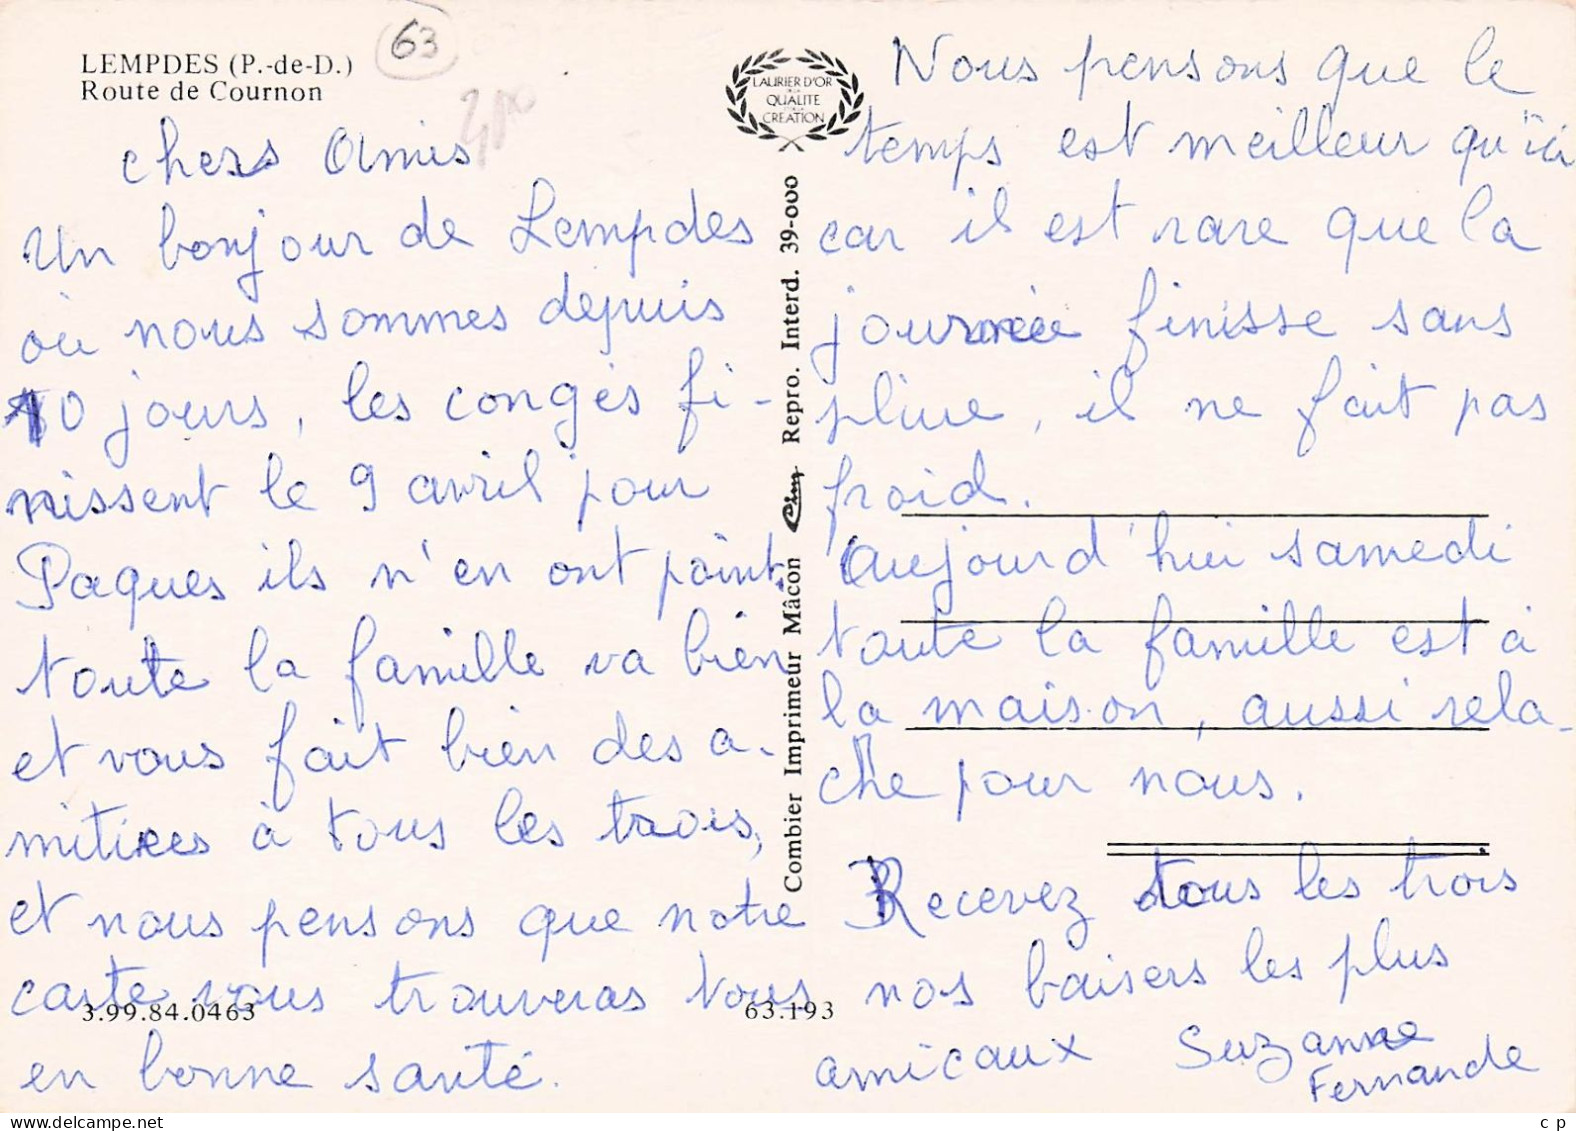 LEMPDES (P.-de-D.)
Route de Cournon
63
chers Amis
Un bonjour de Lempdes
où nous sommes depuis
10 jours, les congés fi-
nissent le 9 avril pour
Paques ils n'en ont point.
toute la famille va bien
et vous fait bien des a-
mitiées à tous les trois,
et nous pensons que notre
carte vous trouveras tous
en bonne santé.
3.99.84.0463
63.193
LAURIER D'OR
DE LA
QUALITE
CREATION
Combier Imprimeur Mâcon Cim Repro. Interd. 39-000
Nous pensons que le
temps est meilleur qu'ici
car il est rare que la
journée finisse sans
pluie, il ne fait pas
froid.
Aujourd'hui samedi
toute la famille est à
la maison, aussi rela-
che pour nous.
Recevez tous les trois
nos baisers les plus
amicaux Suzanne
Fernande
c p